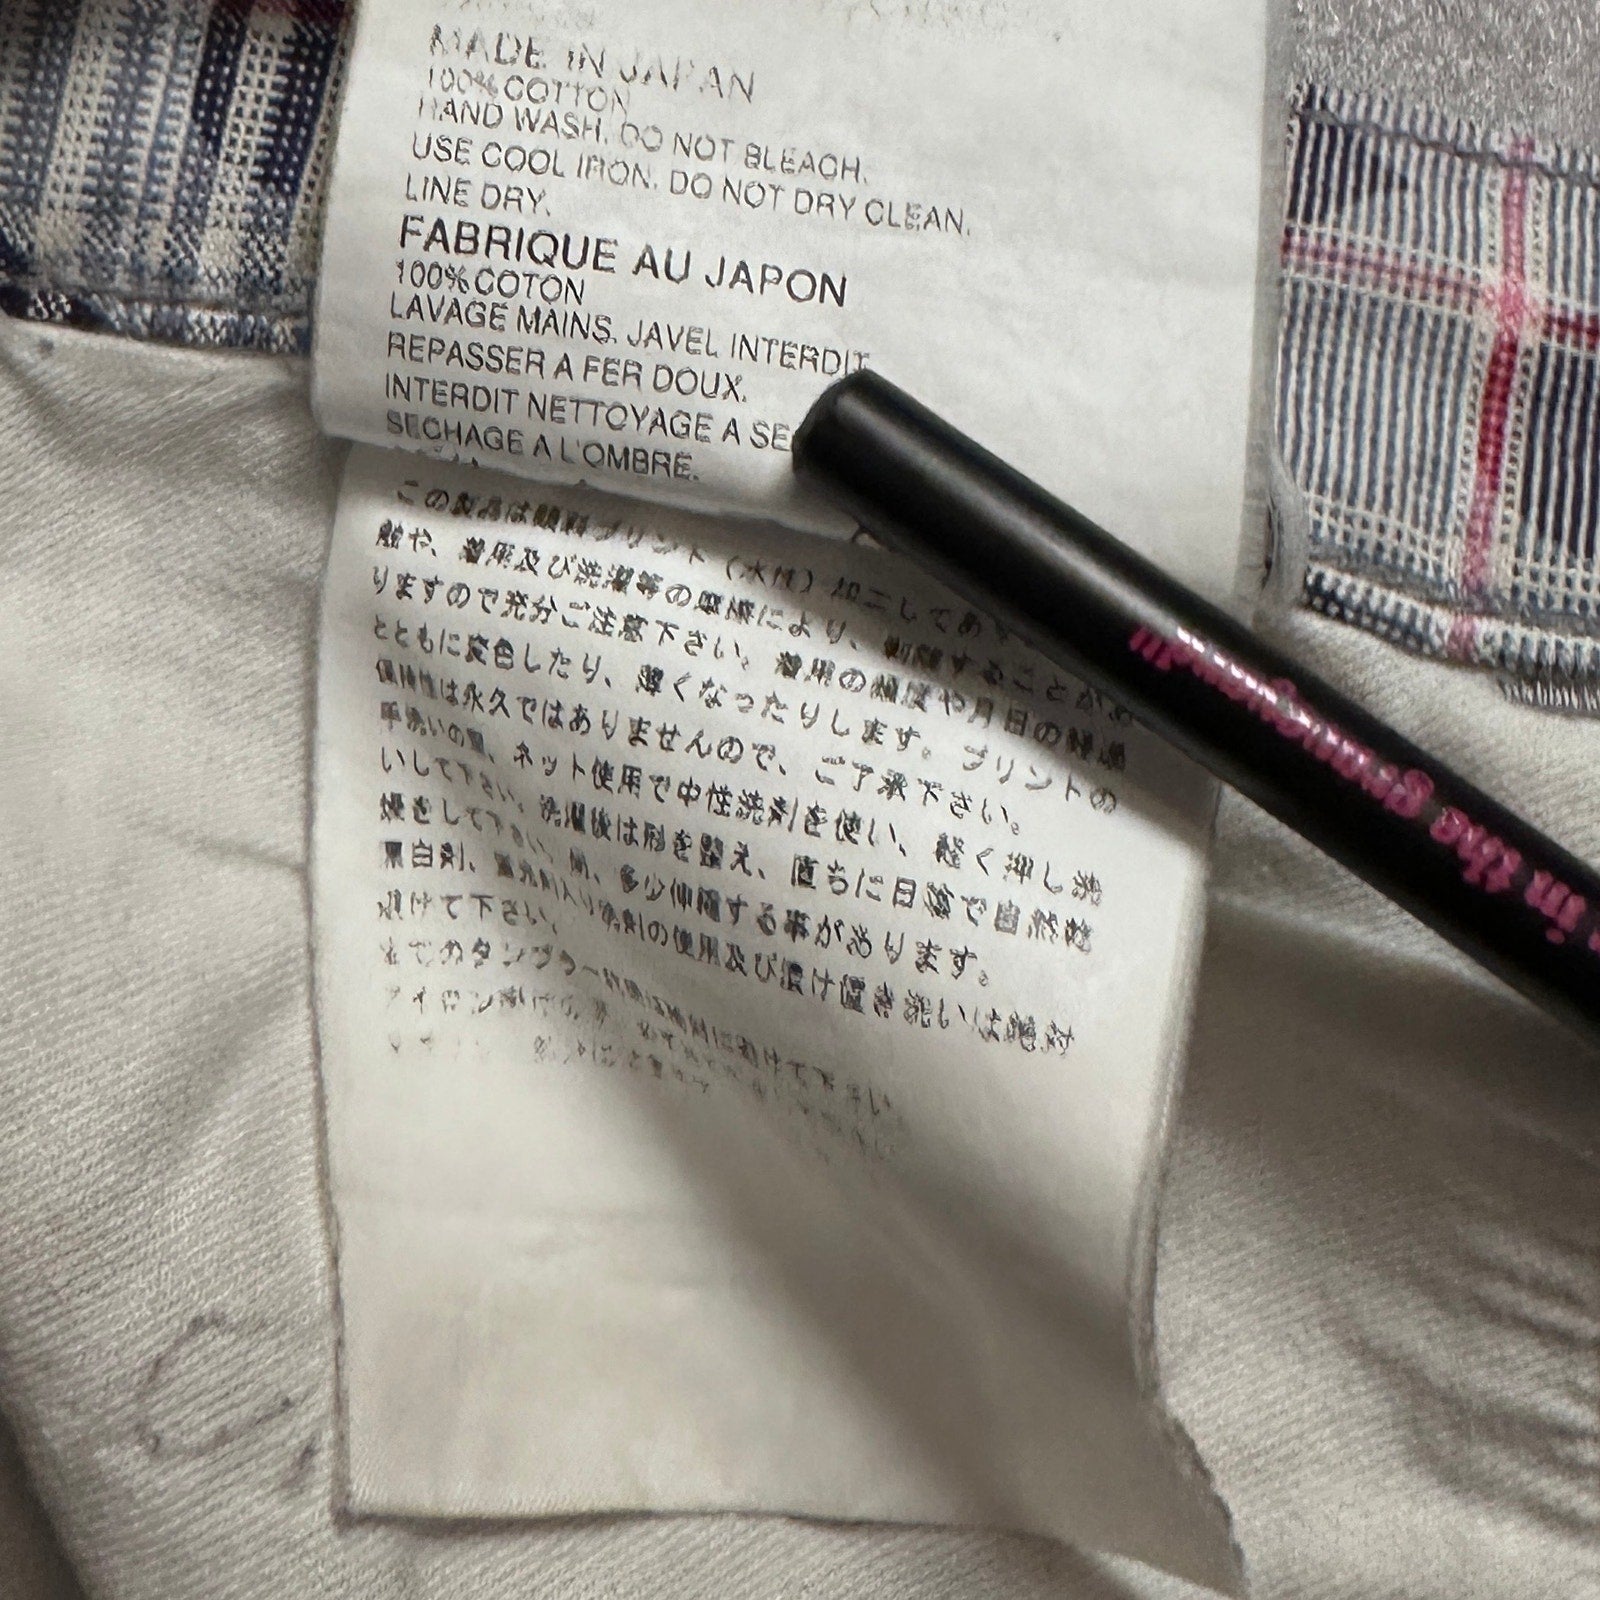 MADE IN JAPAN
100% COTTON
HAND WASH. DO NOT BLEACH.
USE COOL IRON. DO NOT DRY CLEAN.
LINE DRY.
FABRIQUE AU JAPON
100% COTON
LAVAGE MAINS. JAVEL INTERDIT
REPASSER A FER DOUX.
INTERDIT NETTOYAGE A SE
SECHAGE A L'OMBRE.
この製品は顔料プリント(水性)加工してあ
触や、着用及び洗濯等の摩擦により、剥離することがあ
りますので充分ご注意下さい。着用の頻度や月日の経過
とともに変色したり、薄くなったりします。プリントの
保持性は永久ではありませんので、ご了承下さい。
手洗いの際、ネット使用で中性洗剤を使い、軽く押し洗
いして下さい。洗濯後は形を整え、直ちに日陰で自然乾
燥をして下さい。尚、多少伸縮する事があります。
漂白剤、蛍光剤入り洗剤の使用及び漬け置き洗いは絶対
避けて下さい。
のタンブラー乾燥は絶対に避けて下さい。
in the